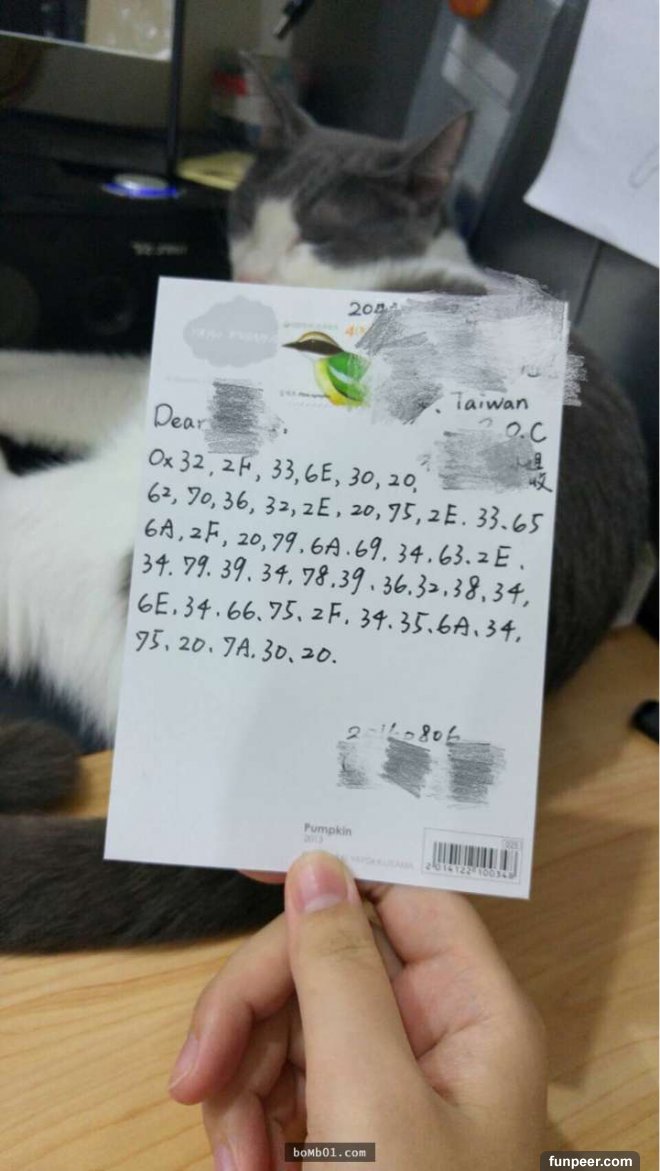 Taiwan
R.O.C
收
Dear
0x 32, 2F, 33, 6E, 30, 20,
62, 70, 36, 32, 2E, 20, 75, 2E. 33、65
6A, 2F, 20, 79. 6A. 69. 34. 63. 2E.
34. 79. 39. 34. 78. 39. 36. 32. 38. 34,
6E. 34. 66. 75. 2F. 34. 35. 6A. 34,
75. 20. 7A. 30. 20.
Pumpkin
2013
YAYOI KUSAMA
025
2 014122 100348
boMb01.com
funpeer.com